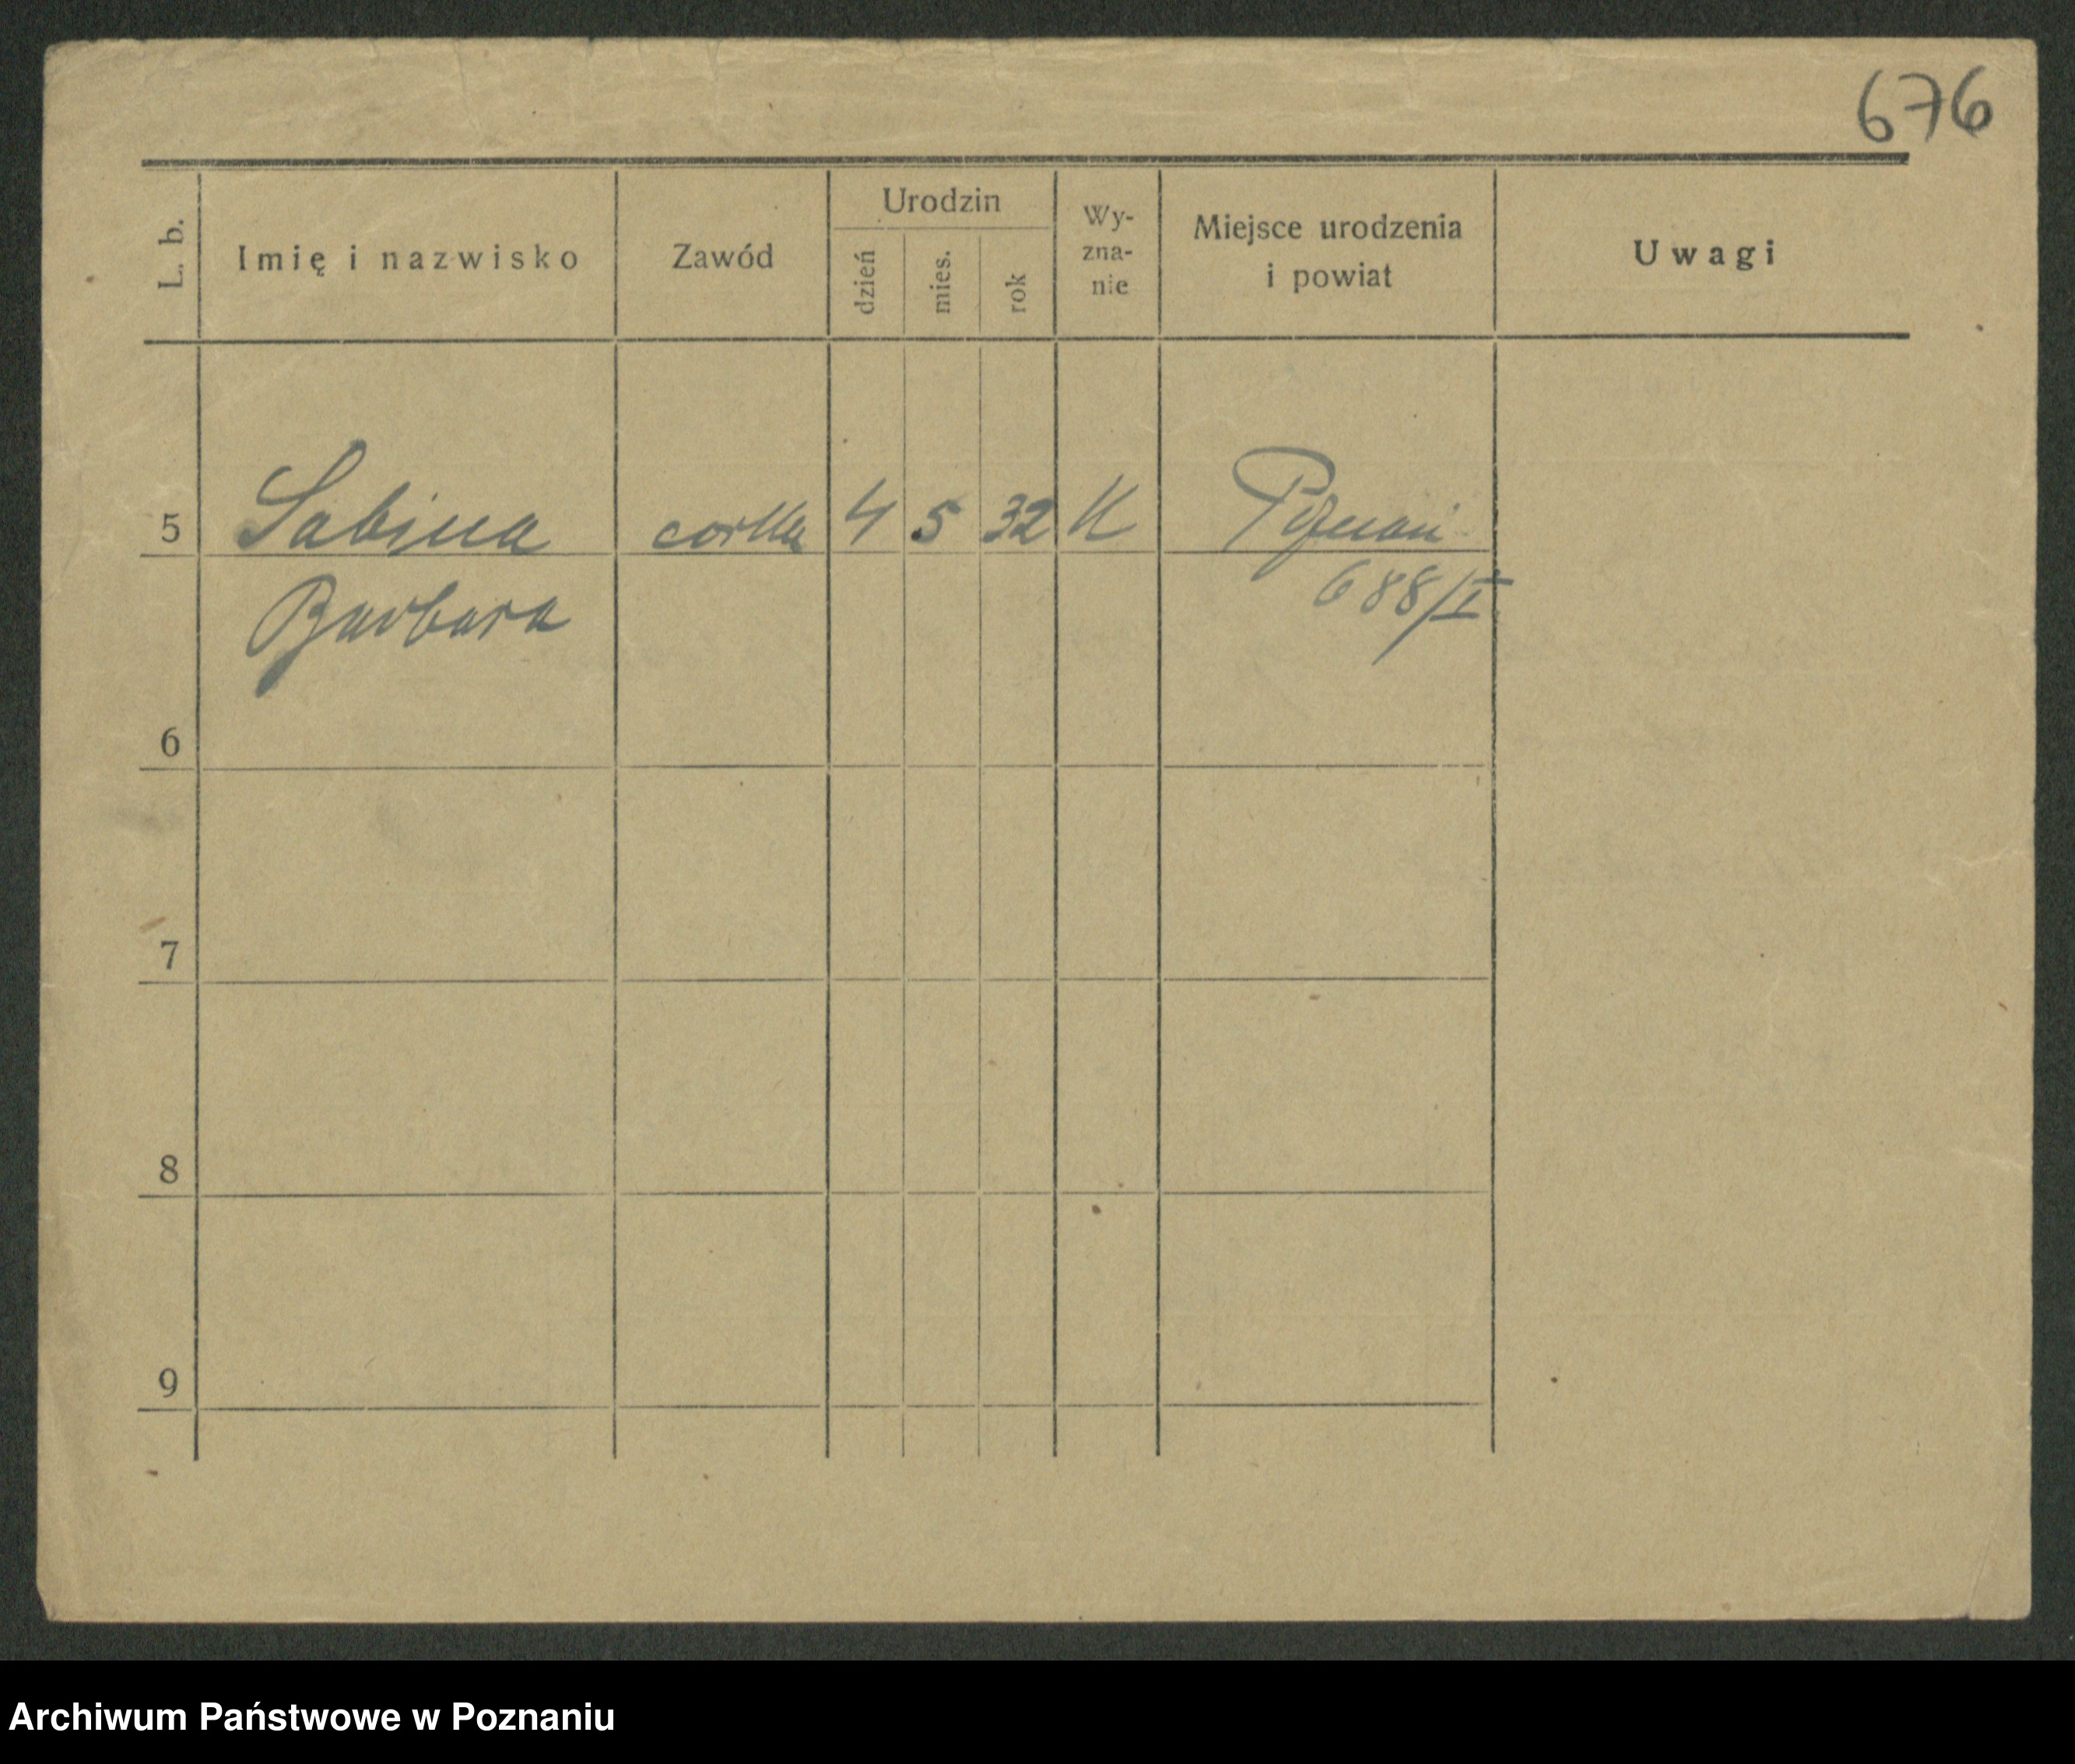 676
L. b.
Imię i nazwisko
Zawód
Urodzin
dzień
mies.
rok
Wy-
zna-
nie
Miejsce urodzenia
i powiat
Uwagi
5 Sabina corka 4 5 32 K Poznań
Barbara 688/I
6
7
8
9
Archiwum Państwowe w Poznaniu